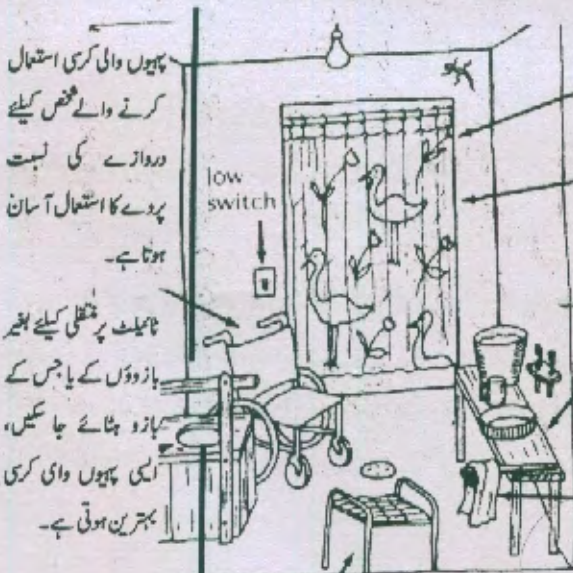 پہیوں والی کرسی استعمال
کرنے والے شخص کیلئے
دروازے کی نسبت
پردے کا استعمال آسان
ہوتا ہے۔
low
switch
ٹائیلٹ پر منتقلی کیلئے بغیر
بازوؤں کے یا جس کے
بازو ہٹائے جا سکیں،
ایسی پہیوں وای کرسی
بہترین ہوتی ہے۔